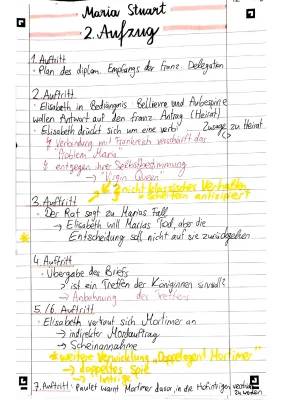 Maria Stuart
2. Aufzug
1. Auftritt
· Plan des diplom. Empfangs der franz. Delegaten
2. Auftritt
· Elisabeth in Bedrängnis Bellievre und Aubespine
wollen Antwort auf den franz. Antrag (Heirat)
· Elisabeth drückt sich um eine verbi Zusage zu Heirat
↯ Verbindung mit Frankreich verschärft das
"Problem Maria"
↯ entgegen ihre Selbstbestimmung
→ "Virgin Queen"
nicht klassisches Verhalten
3. Auftritt
· Der Rat sagt zu Marias Fall
→ Elisabeth will Marias Tod, aber die
Entscheidung soll nicht auf sie zurückgehen
4. Auftritt
· Übergabe des Briefs
→ ist ein Treffen der Königinnen sinnvoll?
→ Anbahnung des Treffens
5./6. Auftritt
· Elisabeth vertraut sich Mortimer an
→ indirekter Mordauftrag
→ Scheinannahme
* weitere Verwicklung "Doppelagent Mortimer"
→ doppeltes Spiel
→ Intrige
7. Auftritt: Paulet warnt Mortimer davor, in die Hofintrigen
zu werden